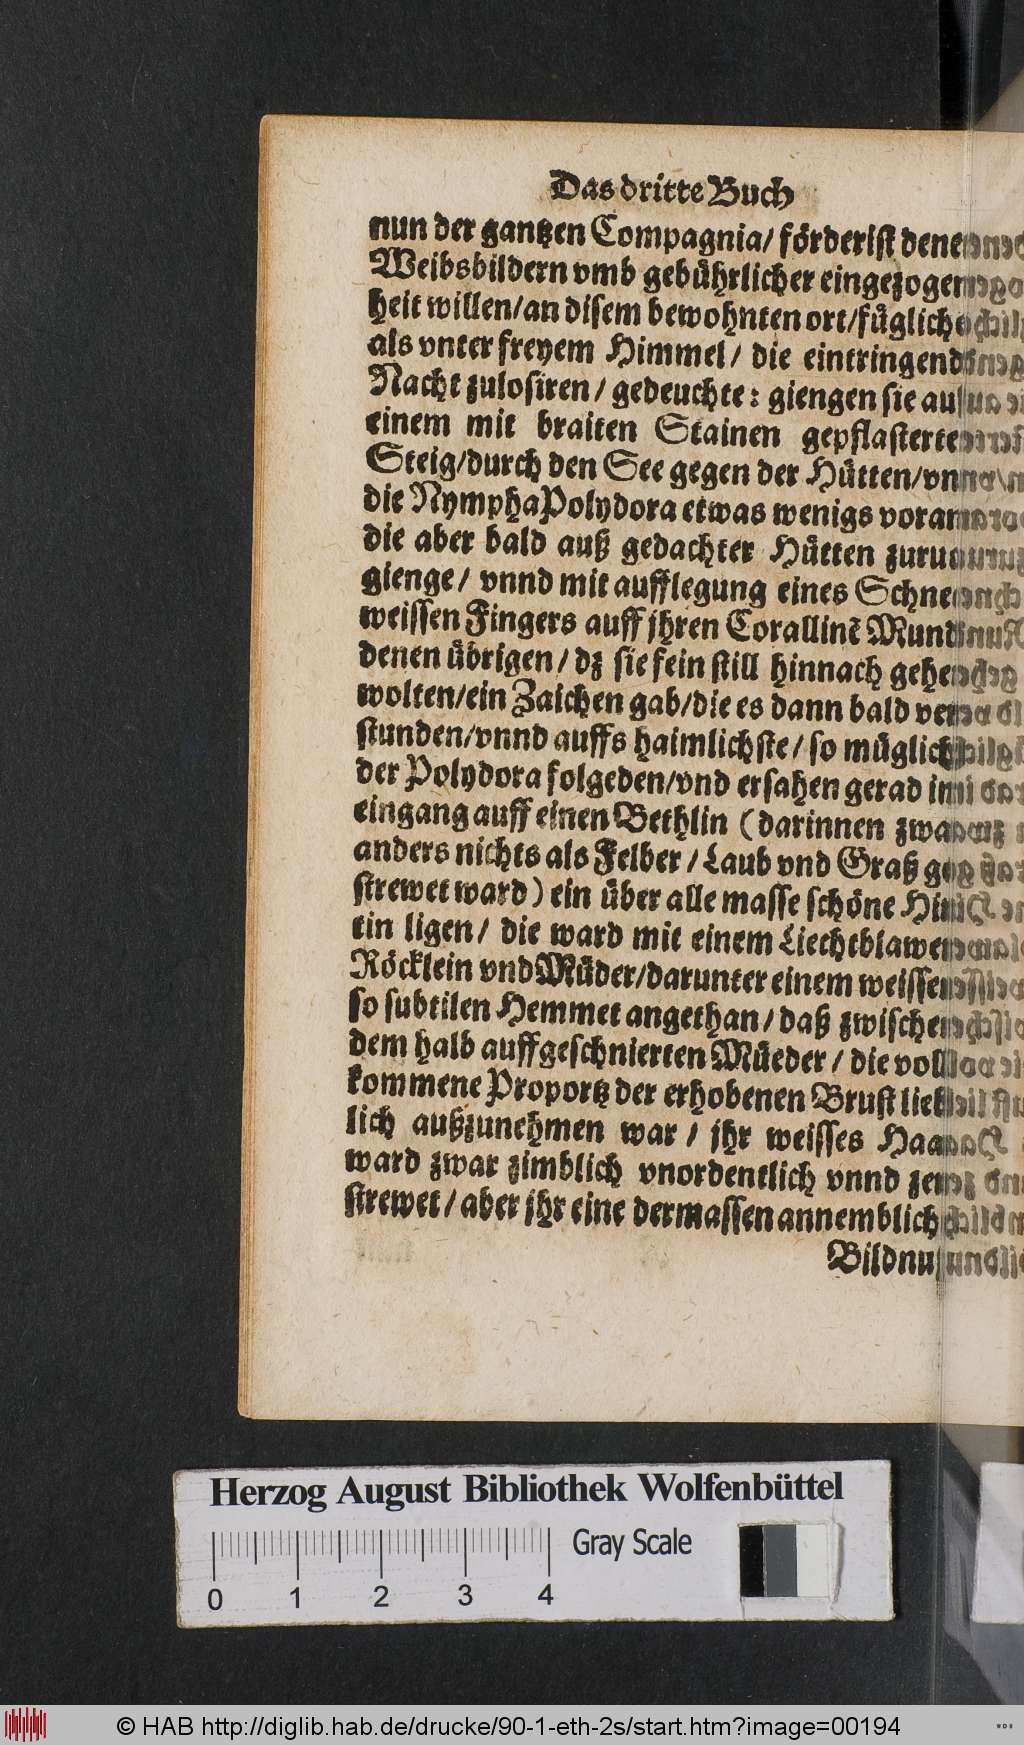 Das dritte Buch
nun der gantzen Compagnia/ förderist denen
Weibsbildern vmb gebührlicher eingezogen
heit willen/an disem bewohnten ort/füglicher
als vnter freyem Himmel/ die eintringende
Nacht zulosiren/ gedeuchte: giengen sie auf
einem mit braiten Stainen gepflasterten
Steig/durch den See gegen der Hütten/vnnd
die Nympha Polydora etwas wenigs voran
die aber bald auß gedachter Hütten zuruck
gienge/ vnnd mit aufflegung eines Schnee
weissen Fingers auff jhren Corallinē Mund
denen übrigen/ dz sie fein still hinnach gehen
wolten/ein Zaichen gab/die es dann bald ver
stunden/vnnd auffs haimlichste/ so müglich
der Polydora folgeden/vnd ersahen gerad im
eingang auff einen Bethlin (darinnen zwar
anders nichts als Felber/ Laub vnd Graß ge
strewet ward) ein über alle masse schöne Hir
tin ligen/ die ward mit einem Liechtblawen
Röcklein vnd Müder/darunter einem weissen
so subtilen Hemmet angethan/ daß zwischen
dem halb auffgeschnierten Müeder/ die voll
kommene Proportz der erhobenen Brust lieb
lich außzunehmen war/ jhr weisses Haar
ward zwar zimblich vnordentlich vnnd zer
strewet/ aber jhr eine dermassen annemblich
Bildnuß
Herzog August Bibliothek Wolfenbüttel
Gray Scale
0 1 2 3 4
© HAB http://diglib.hab.de/drucke/90-1-eth-2s/start.htm?image=00194